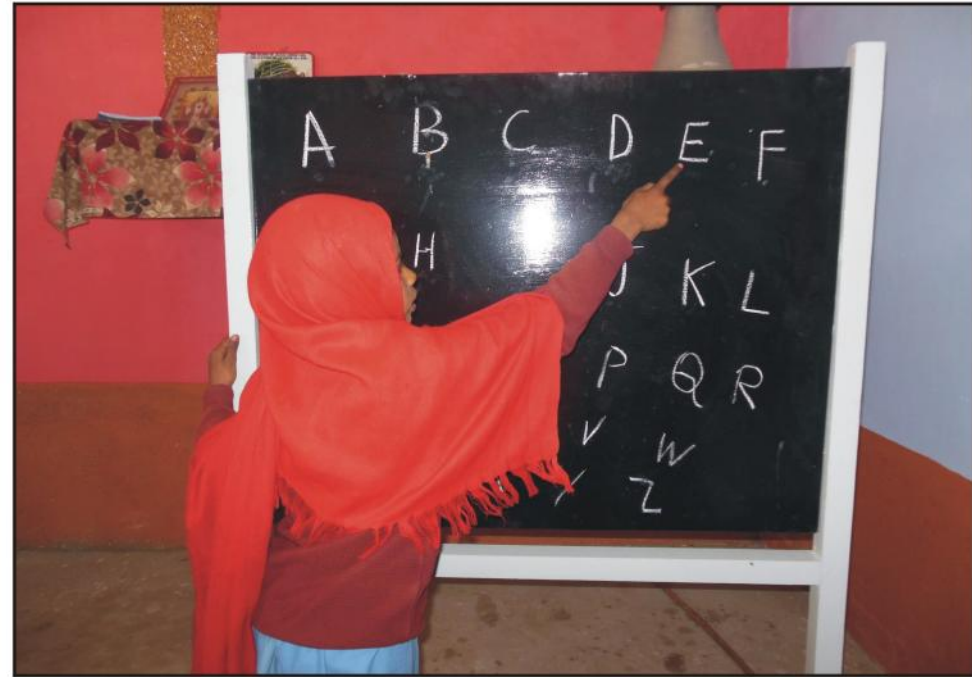 A B C D E F
H J K L
P Q R
V W
Y Z